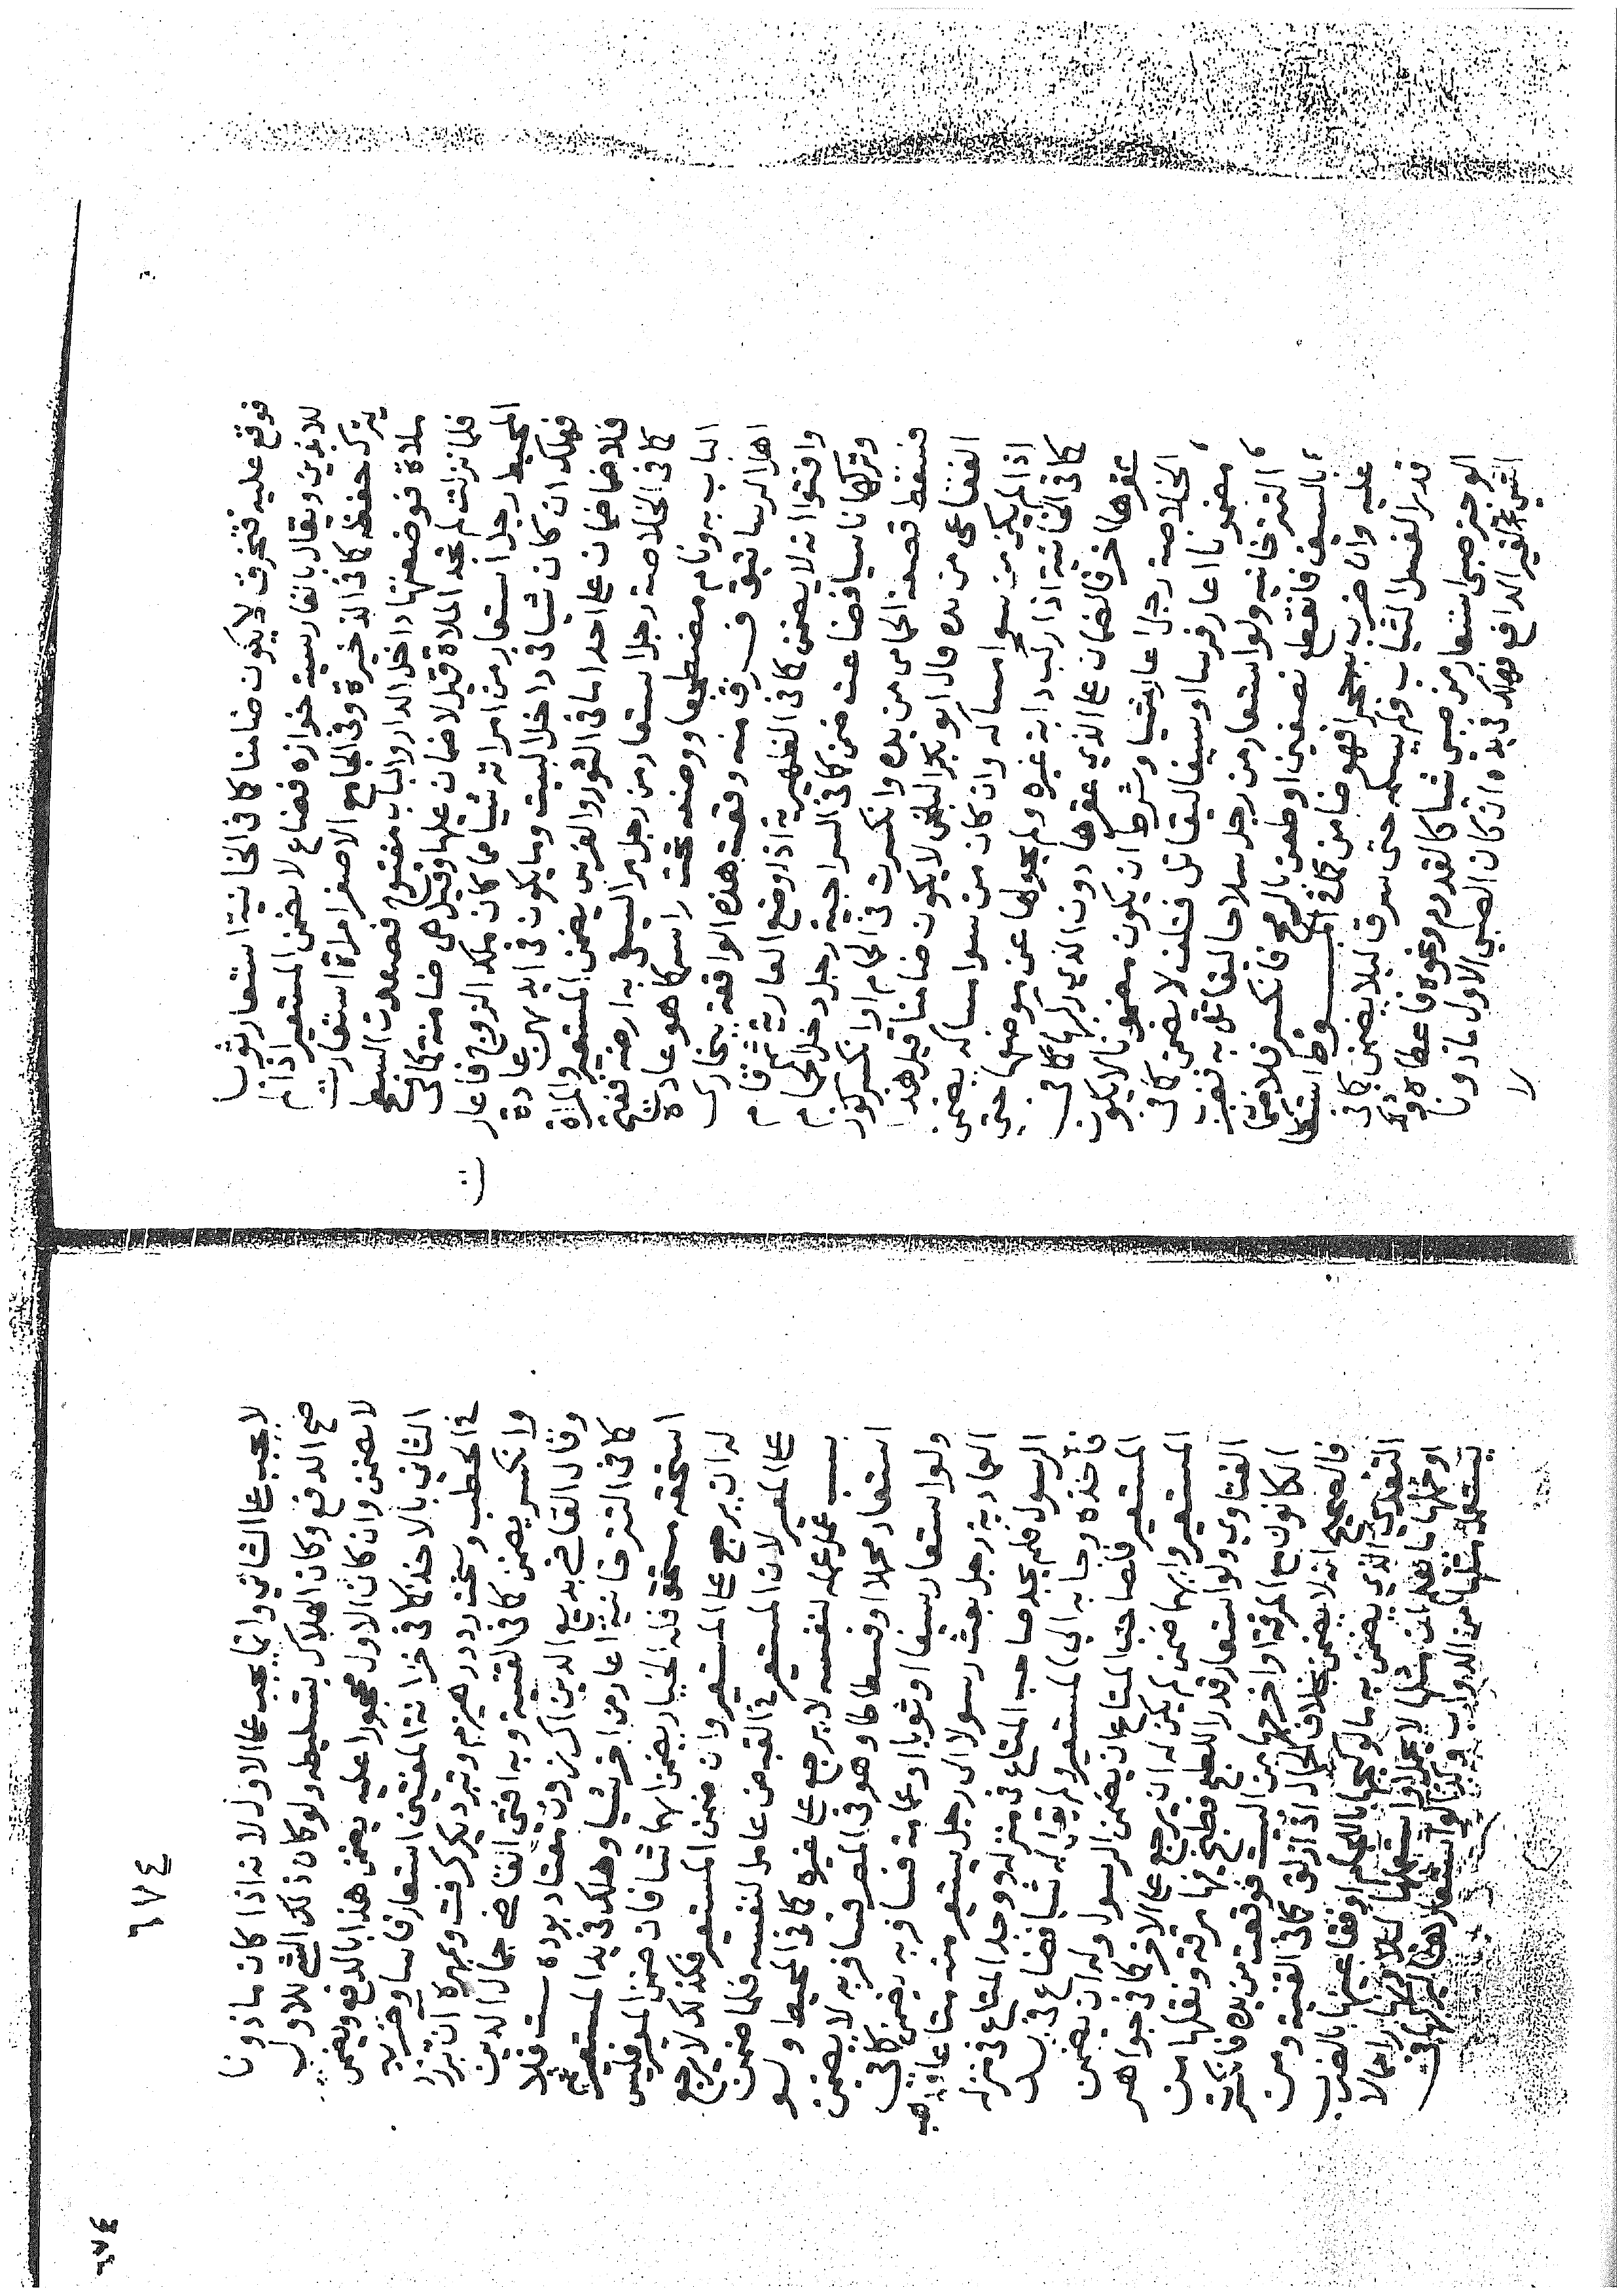 فوقع عليه فتخرق لا يكون ضامنا كما في الخانية استعار ثوبا
للاذين ويقال بالفارسية خوازه فضاع لا يضمن المستعير اذا لم
يترك حفظه كما في الذخيرة وفي الجامع الاصغر امراة استعارت
ملاة فوضعتها داخل الدار والباب مفتوح فصعدت السطح
فلما نزلت لم تجد الملاة قيل لا ضمان عليها وقيل هي ضامنة كما في
المحيط رجل استعار من امراته شيا مما كان ملك الزوج فاعار
فهلك ان كان شيا في داخل البيت وما يكون في ايديهن عادة
فلا ضمان على احد اما في الثور والفرس يضمن المستعير والمراة
كما في الخلاصة رجل استعار من رجل مر اليسقى به ارضه ففتح
الباب به ونام مضطجعا ووضعه تحت راسه كما هو عادة
اهل الرساتيق فسرق منه وقعت هذه الواقعة ببخارى
وافتوا انه لا يضمن كما في الظهيرية اذا وضع العارية ثم قام
وتركها ناسيا فضاعت ضمن كما في السراجية رجل دخل الحمام
فسقط قصعة الحمامي من يده وانكسرت في الحمام او انكسر كوز
الفقاعي من يده قال ابو بكر البلخي لا يكون ضامنا قيل هذا
اذا لم يكن من سوء امساكه وان كان من سوء امساكه يضمن
كما في الخانية اذا ركب دابة غيره ولم يحولها عن موضعها حتى
عقرها اخر فالضمان على الذي عقرها دون الذي ركبها كما في
الخلاصة رجل اعار شيا وشرط ان يكون مضمونا لا يكون
مضمونا اعار فرسا او سيفا ليقاتل فتلف لا يضمن كما في
التترخانية ولو استعار من رجل سلاحا ليقاتل به فضرب
بالسيف فانقطع نصفين او طعن بالرمح فانكسر فلا ضمان
عليه وان ضرب به حجرا فهو ضامن كما في المبسوط استعار
قدرا لغسل الثياب ولم يسلمه حتى سرق ليلا يضمن كما في
الوجيز صبي استعار من صبي شيا كالقدوم ونحوه فاعطاه وذلك
الشي لغير الدافع فهلك في يده ان كان الصبي الاول ماذونا
لا
٦٧٤
لا يجب على الثاني وانما يجب على الاول لانه اذا كان ماذونا
صح الدفع وكان الهلاك بتسليطه ولو كان ذلك الشي للاول
لا يضمن وان كان الاول محجورا عليه يضمن هذا بالدفع ويضمن
الثاني بالاخذ كما في خزانة المفتين استعار فاسا وضربه
في الحطب وانكسر يضمن كما في القنية وبه افتى القاضي جمال الدين
وقال القاضي بديع الدين
كما في التترخانية اعار من اخر شيا وهلك في يد المستعير ثم
استحقه مستحق فله الخيار يضمن ايهما شا فان ضمن المعير فليس
له ان يرجع على المستعير وان ضمن المستعير فكذلك لا يرجع
على المعير لان المستعير في القبض عامل لنفسه فلما ضمن
بسبب عمل عمله لنفسه لا يرجع على غيره كما في المحيط ولو
استعار محملا او فسطاطا وهو في المصر فسافر به لا يضمن
ولو استعار سيفا او ثوبا او عمامة فسافر به يضمن كما في
العمادية رجل بعث رسولا الى رجل ليستعير منه متاعا
الرسول فلم يجد صاحب المتاع في منزله ووجد المتاع في منزله
فاخذه وجا به الى المستعير ولم يقل له شيا فضاع في يد
المستعير فلصاحب المتاع ان يضمن الرسول وله ان يضمن
المستعير وايهما ضمن لم يكن له ان يرجع على الاخر كما في جواهر
الفتاوى ولو استعار قدرا للطبخ فطبخ فيها مرقة ونقلها من
الكانون مع المرقة واخرجها من البيت فوقعت من يده فانكسرت
فالصحيح انه لا يضمن بخلاف الحمال اذا زلق كما في القنية ومن
التعدي الذي يضمن به ما لو كبحها باللجام او فقا عينها بالضرب
او حملها ما يعلم ان مثلها لا يحمل